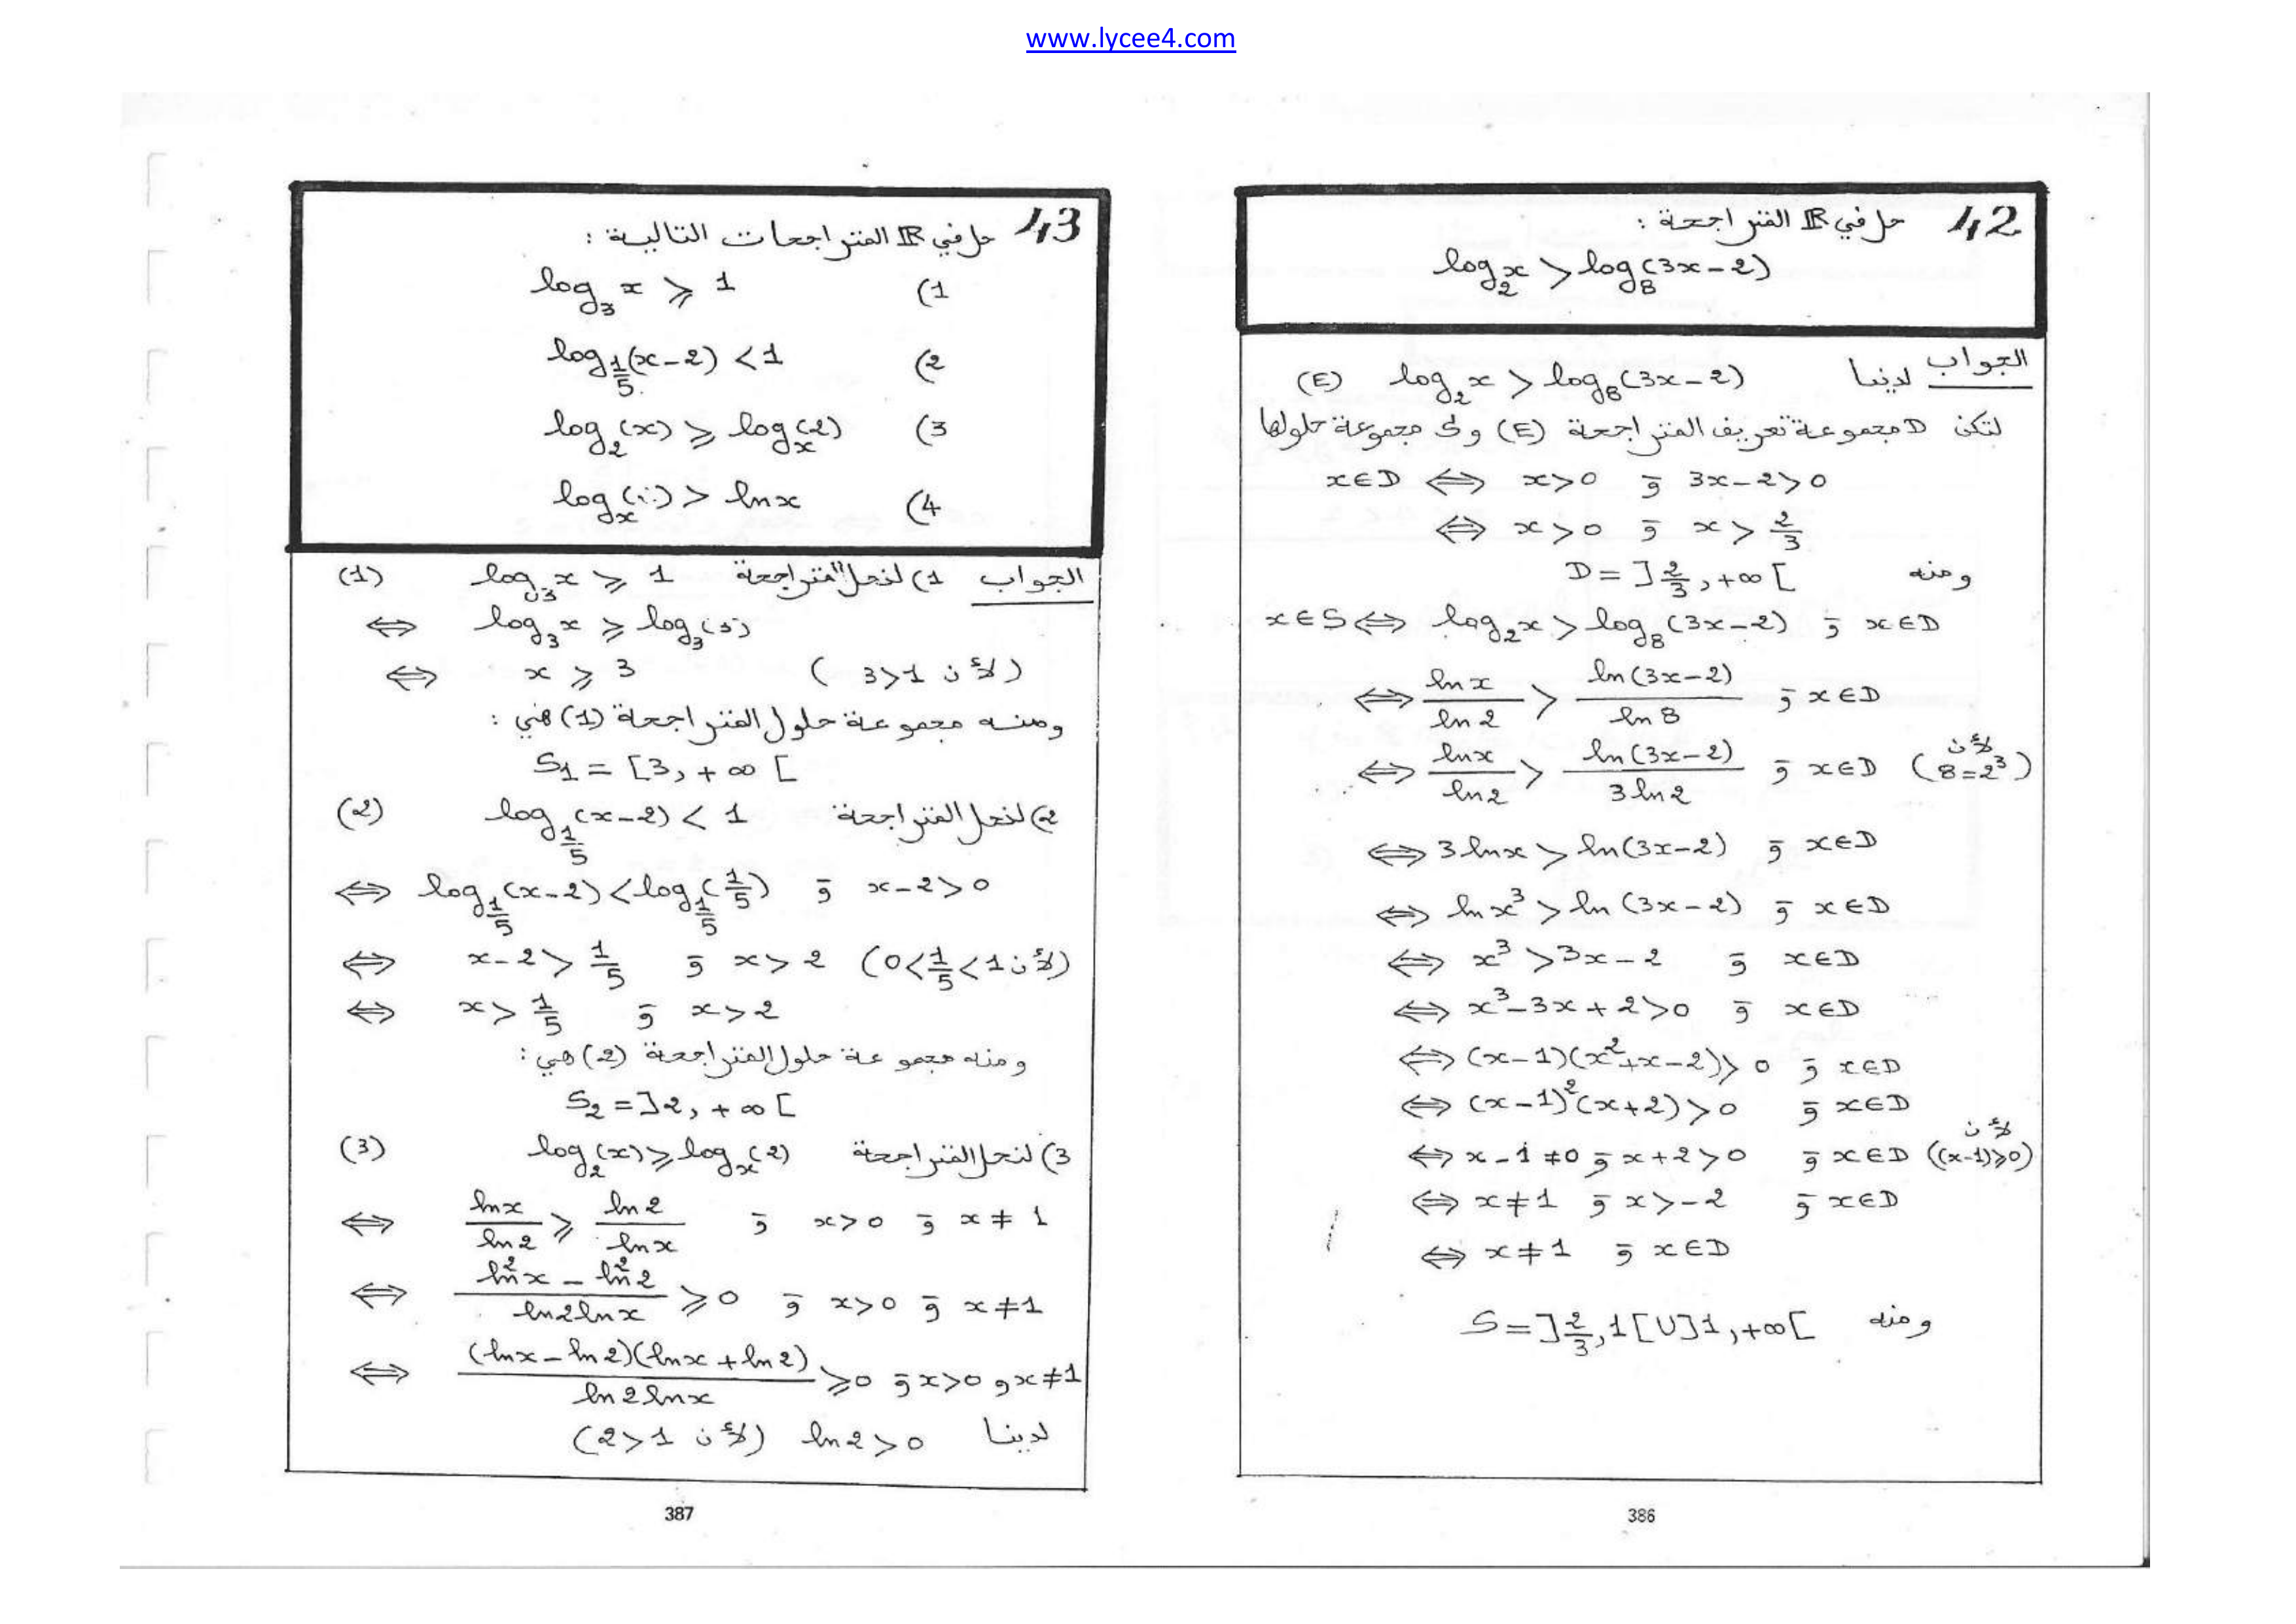 www.lycee4.com
42 حل في ℝ المتراجحة :
log₂x > log₈(3x-2)
الجواب لدينا log₂x > log₈(3x-2) (E)
لتكن D مجموعة تعريف المتراجحة (E) و S مجموعة حلولها
x∈D ⟺ x>0 و 3x-2>0
⟺ x>0 و x>2/3
ومنه D=]2/3,+∞[
x∈S ⟺ log₂x > log₈(3x-2) و x∈D
⟺ lnx/ln2 > ln(3x-2)/ln8 و x∈D
⟺ lnx/ln2 > ln(3x-2)/3ln2 و x∈D (لأن 8=2³)
⟺ 3lnx > ln(3x-2) و x∈D
⟺ lnx³ > ln(3x-2) و x∈D
⟺ x³ > 3x-2 و x∈D
⟺ x³-3x+2>0 و x∈D
⟺ (x-1)(x²+x-2)>0 و x∈D
⟺ (x-1)²(x+2)>0 و x∈D
⟺ x-1≠0 و x+2>0 و x∈D (لأن (x-1)⩾0)
⟺ x≠1 و x>-2 و x∈D
⟺ x≠1 و x∈D
ومنه S=]2/3,1[U]1,+∞[
386
43 حل في ℝ المتراجحات التالية :
1) log₃x ⩾ 1
2) log_{1/5}(x-2) < 1
3) log₂(x) ⩾ log_x(2)
4) log_x( ) > lnx
الجواب 1) لنحل المتراجحة log₃x ⩾ 1 (1)
⟺ log₃x ⩾ log₃(3)
⟺ x ⩾ 3 (لأن 3>1)
ومنه مجموعة حلول المتراجحة (1) هي :
S₁ = [3,+∞[
2) لنحل المتراجحة log_{1/5}(x-2) < 1 (2)
⟺ log_{1/5}(x-2) < log_{1/5}(1/5) و x-2>0
⟺ x-2>1/5 و x>2 (لأن 0<1/5<1)
⟺ x>1/5 و x>2
ومنه مجموعة حلول المتراجحة (2) هي :
S₂=]2,+∞[
3) لنحل المتراجحة log₂(x) ⩾ log_x(2) (3)
⟺ lnx/ln2 ⩾ ln2/lnx و x>0 و x≠1
⟺ (ln²x - ln²2)/(ln2lnx) ⩾ 0 و x>0 و x≠1
⟺ (lnx-ln2)(lnx+ln2)/(ln2lnx) ⩾0 و x>0 و x≠1
لدينا ln2>0 (لأن 2>1)
387